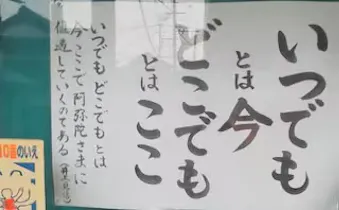 いつでも
とは今
どこでも
とはここ
いつでも どこでもとは
今ここで 阿弥陀さまに
値遇していくのである